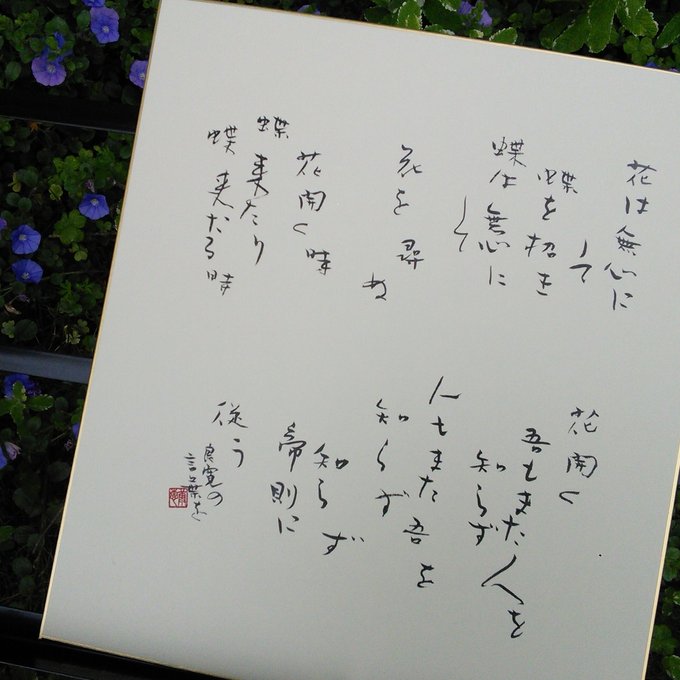 花は無心に
して
蝶を招き
蝶は無心に
して
花を尋
ぬ
花開く時
蝶来たり
蝶来たる時
花開く
吾もまた人を
知らず
人もまた吾を
知らず
知らず
帝則に
従う
良寛の
言葉を